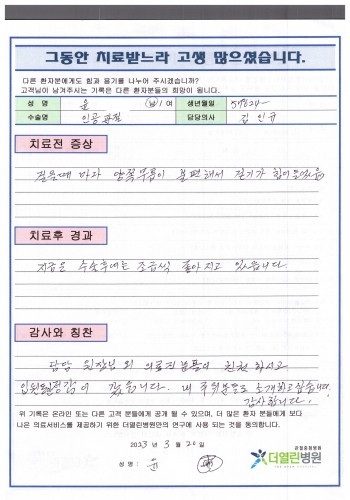 그동안 치료받느라 고생 많으셨습니다.
다른 환자분에게도 힘과 용기를 나누어 주시겠습니까?
고객님이 남겨주시는 기록은 다른 환자분들의 희망이 됩니다.
성 명 윤 (남) / 여 생년월일
수술명 인공관절 담당의사 김인규
치료전 증상
걸을때 마다 양쪽무릎이 불편해서 걷기가 힘이들었음
치료후 경과
지금은 수술후에는 조금씩 좋아지고 있습니다.
감사와 칭찬
담당 원장님 외 의료진분들이 친절하시고
갔습니다. 내 주위분들도 소개하고싶습니다.
감사합니다.
위 기록은 온라인 또는 다른 고객 분들에게 공개 될 수 있으며, 더 많은 환자 분들에게 보다
나은 의료서비스를 제공하기 위한 더열린병원만의 연구에 사용 되는 것을 동의합니다.
2023 년 3 월 20 일
성 명 : 윤
관절중점병원
더열린병원